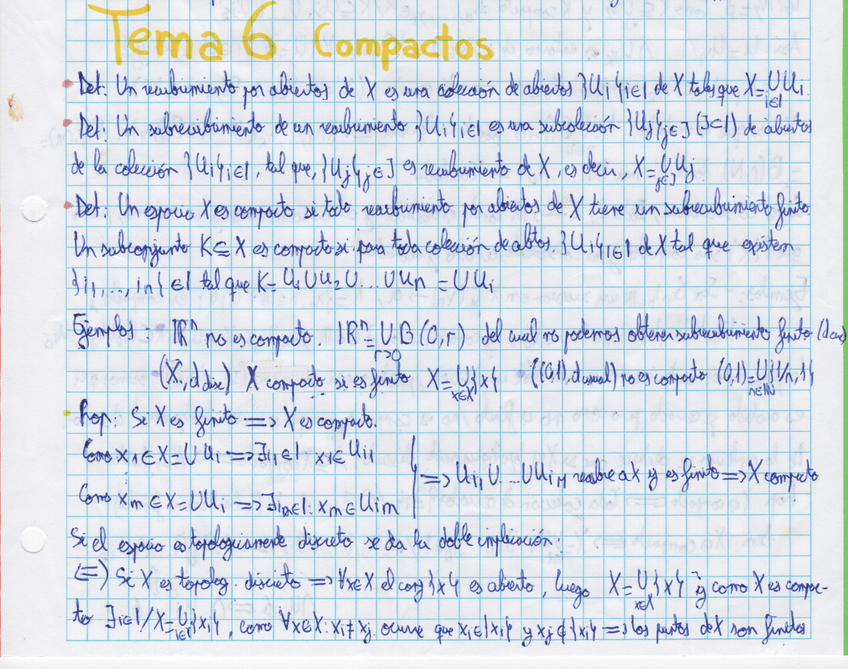 Tema 6 Compactos
• Def: Un recubrimiento por abiertos de X es una colección de abiertos }Ui{i∈I de X tales que X=∪Ui i∈I
• Def: Un subrecubrimiento de un recubrimiento }Ui{i∈I es una subcolección }Uj{j∈J (J⊂I) de abiertos
de la colección }Ui{i∈I, tal que, }Uj{j∈J es recubrimiento de X, es decir, X=∪Uj j∈J
• Def: Un espacio X es compacto si todo recubrimiento por abiertos de X tiene un subrecubrimiento finito
Un subconjunto K⊆X es compacto si para toda colección de abtos. }Ui{i∈I de X tal que existen
}i1, ..., in{∈I tal que K=U1∪U2∪...∪Un=∪Ui
Ejemplos: • ℝⁿ no es compacto. ℝⁿ=∪B(0,r) r>0 del cual no podemos obtener subrecubrimiento finito
• (X, ddisc) X compacto si es finito X=∪}x{ x∈X • ((0,1), dusual) no es compacto (0,1)=∪}1/n,1{ n∈ℕ
• Prop: Si X es finito ⟹ X es compacto.
Como x1∈X=∪Ui ⟹ ∃i1∈I x1∈Ui1
Como xm∈X=∪Ui ⟹ ∃im∈I: xm∈Uim ⟹ Ui1∪...∪Uim recubre a X y es finito ⟹ X compacto
Si el espacio es topológicamente discreto se da la doble implicación:
(⟸) Si X es topolog. discreto ⟹ ∀x∈X el conj }x{ es abierto, luego X=∪}x{ x∈X y como X es compac-
to ∃i∈I/X=∪}xi{ i∈I, como ∀x∈X: xi≠xj ocurre que xi∈}xi{ y xj∉}xi{ ⟹ los puntos de X son finitos